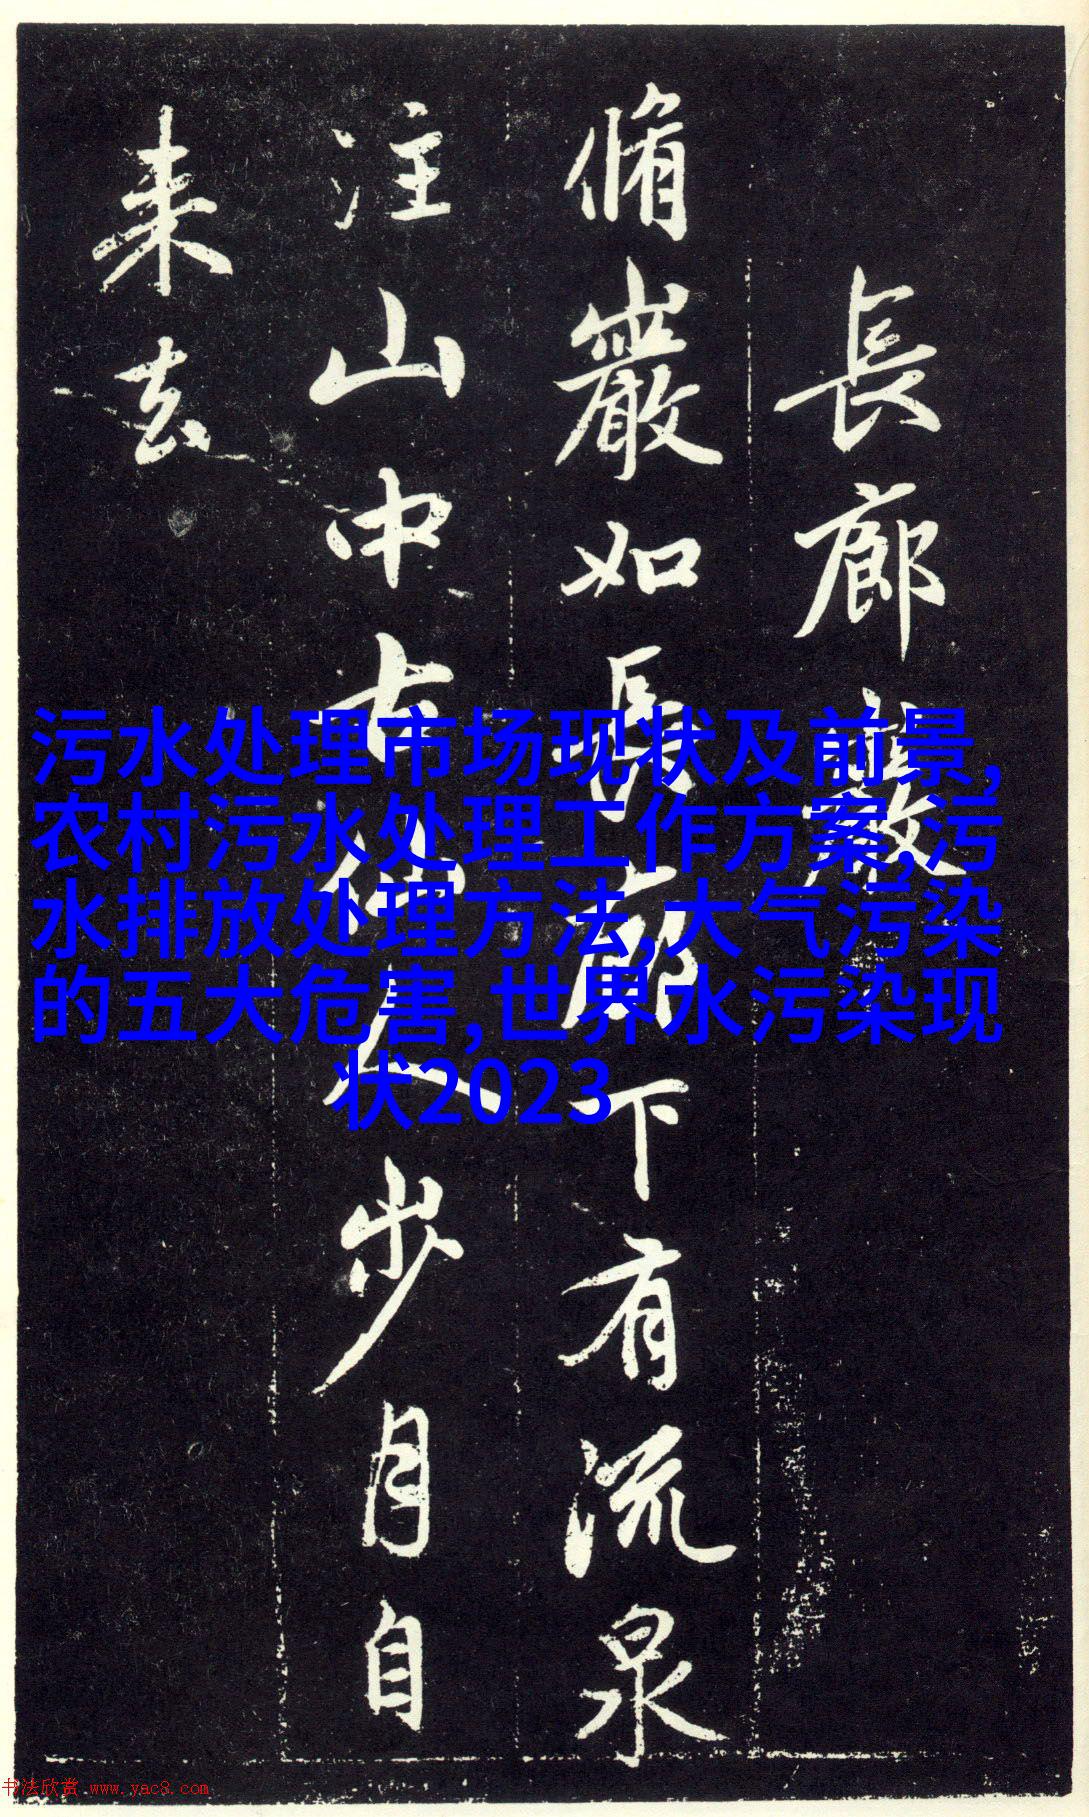 長廊巖
脩巖如長廊下有流泉
注山中古仙人步月自
来去
污水处理市场现状及前景,
农村污水处理工作方案,污
水排放处理方法,大气污染
的五大危害,世界水污染现
状2023
书法欣赏 www.yac8.com